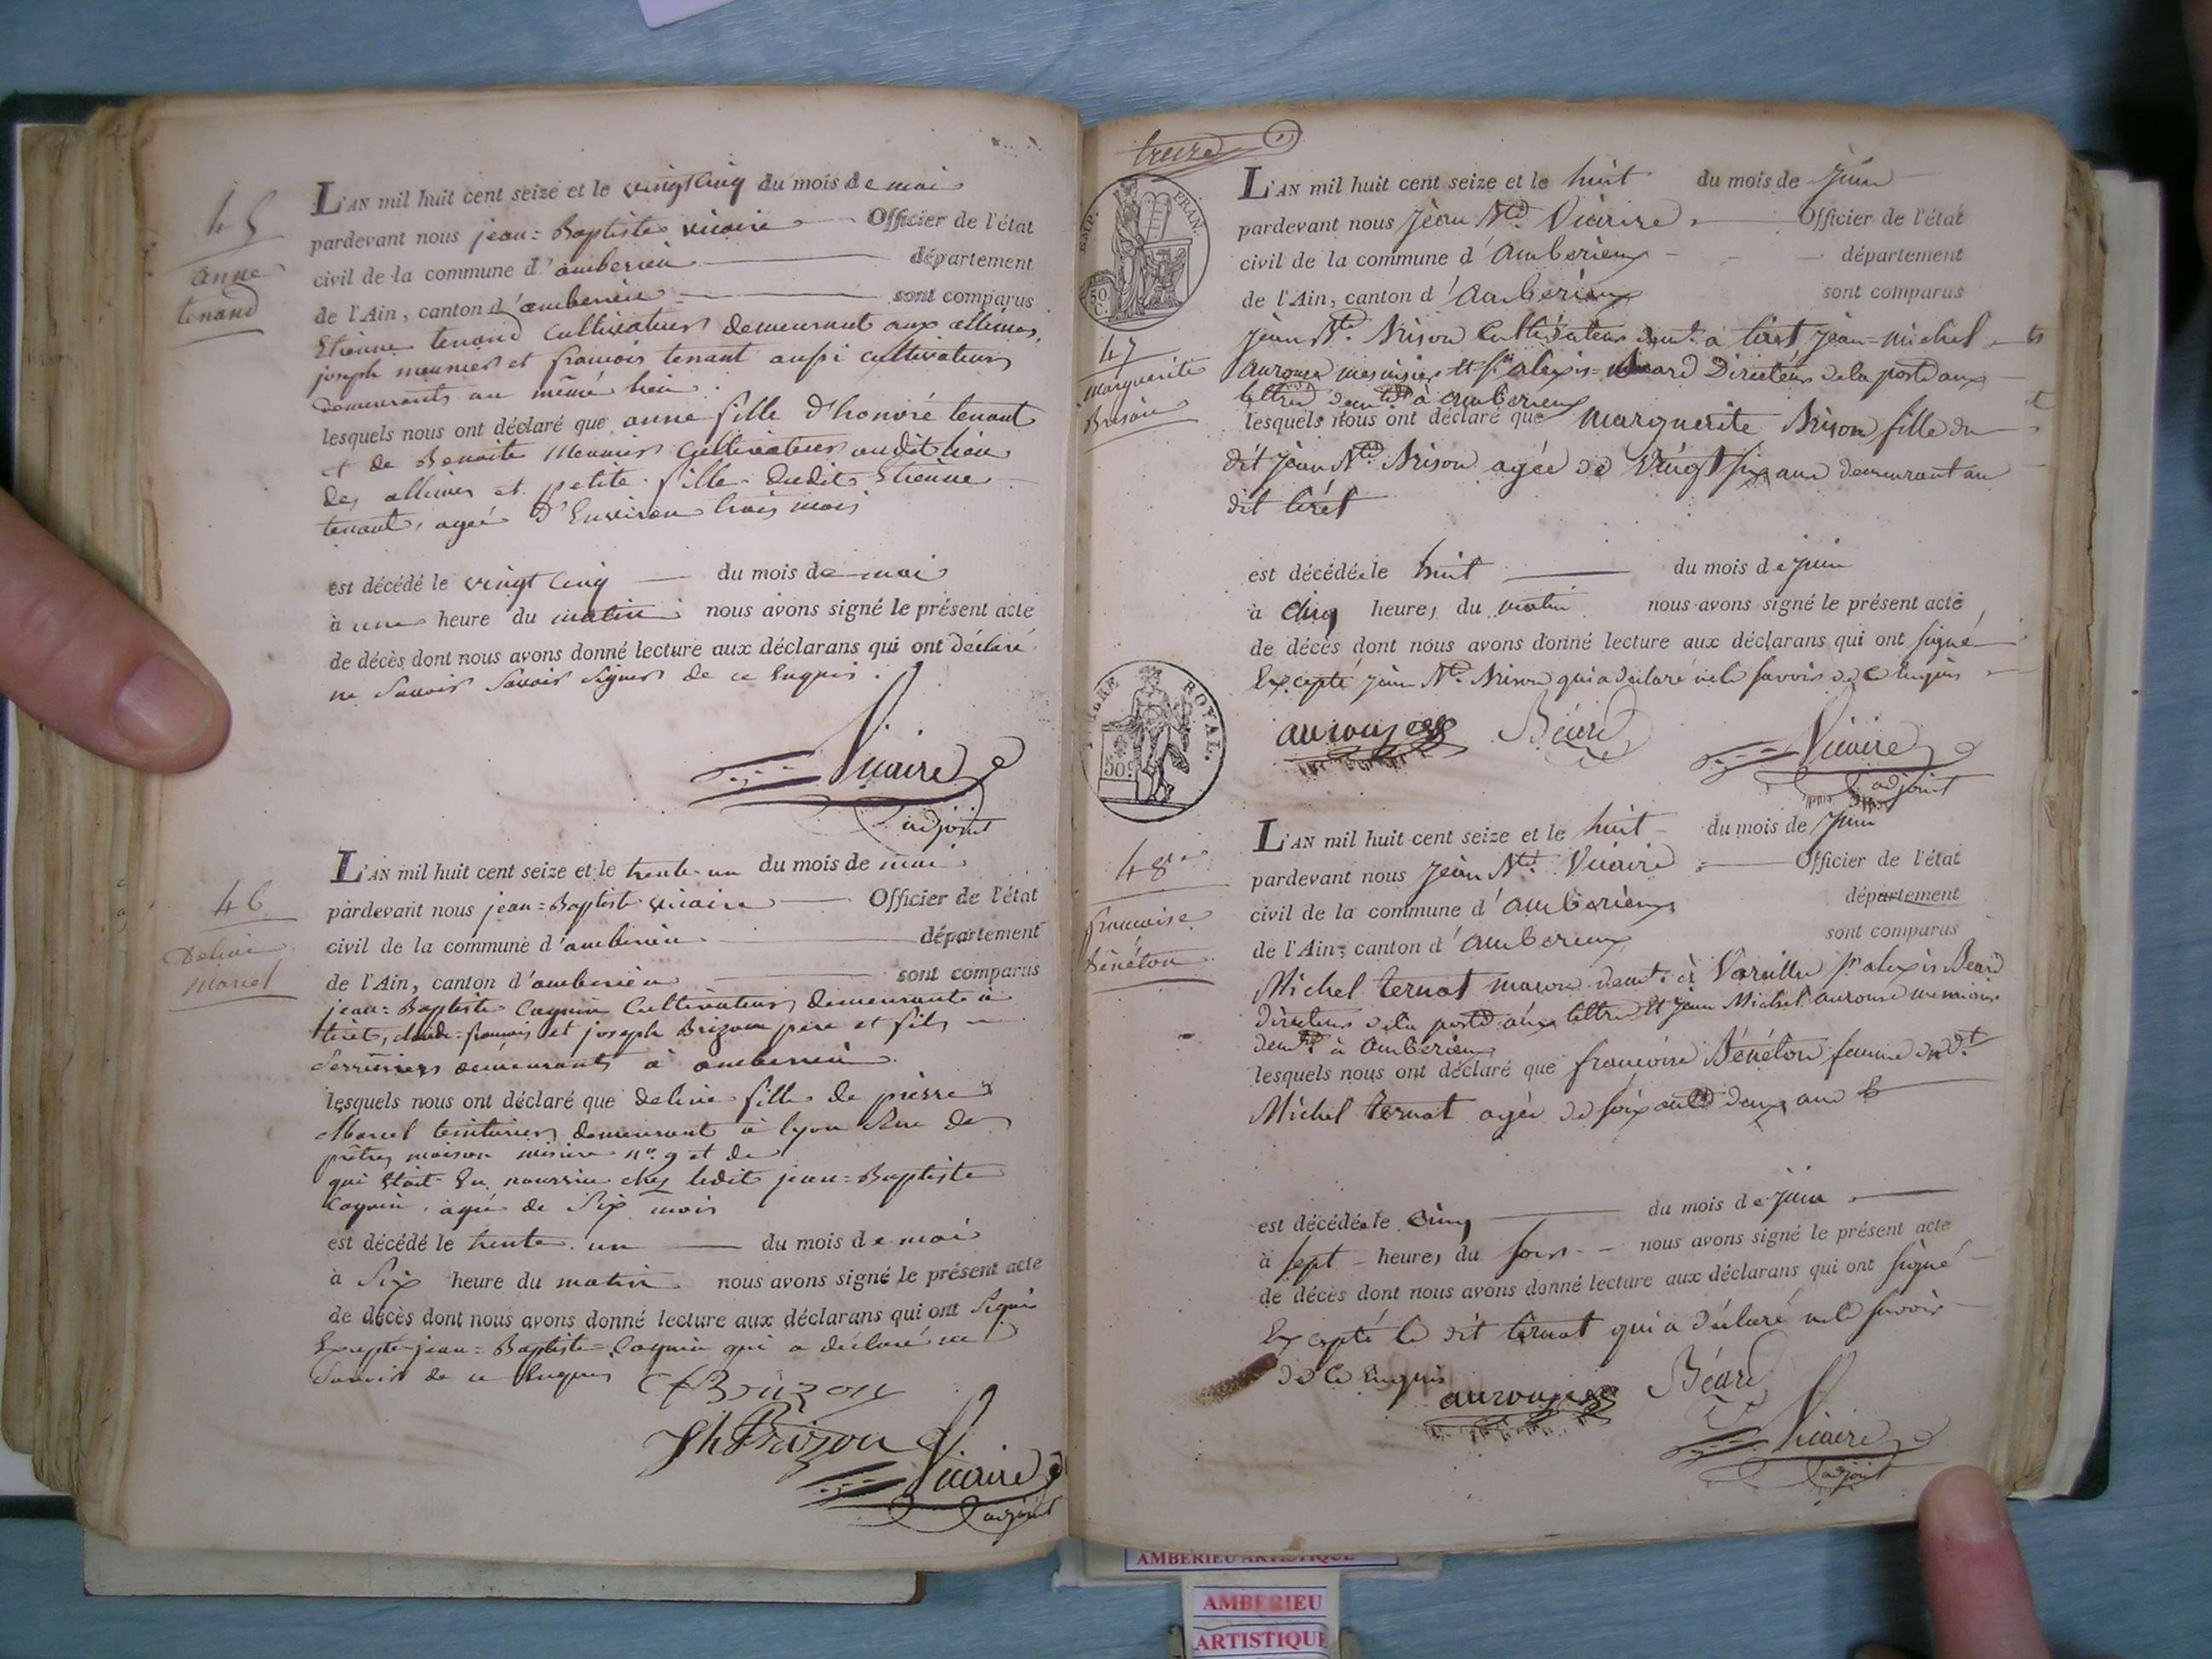 45
anne
tenand
L'AN mil huit cent seize et le vingt cinq du mois de mai
pardevant nous jean=Baptiste vicaire Officier de l'état
civil de la commune d'amberieu département
de l'Ain, canton d'amberieu sont comparus
Etienne tenand cultivateur demeurant aux allimes,
joseph meunier et francois tenant aussi cultivateurs
demeurants au même lieu.
lesquels nous ont déclaré que anne fille d'honoré tenant
et de Benoite Meunier cultivateurs audit lieu
des allimes et petite fille dudit Etienne
tenant, ageé d'Environ trois mois
est décédé le vingt cinq du mois de mai
à une heure du matin nous avons signé le présent acte
de décès dont nous avons donné lecture aux déclarans qui ont déclaré
ne Savoir Signer de ce Enquis.
Vicaire
adjoint
46
Deline
Marcel
L'AN mil huit cent seize et le trente-un du mois de mai
pardevant nous jean=Baptiste vicaire Officier de l'état
civil de la commune d'amberieu département
de l'Ain, canton d'amberieu sont comparus
jean=Baptiste Coquin Cultivateur, demeurant à
tiret, claude=francois et joseph Brizon père et fils
demeurants à amberieu
lesquels nous ont déclaré que deline fille de pierre
Marcel teinturier demeurant à lyon Rue des
prêtres maison n°. 9 et de
qui Etoit En nourrice chez ledit jean=Baptiste
Coquin, ageé de Six mois
est décédé le trente-un du mois de mai
à Six heure du matin nous avons signé le présent acte
de décès dont nous avons donné lecture aux déclarans qui ont Signé
Excepté jean=Baptiste=Coquin qui a déclaré ne
Savoir de ce Enquis
Brizon
Jh Brizon
Vicaire
adjoint
EMP. FRAN.
50 C.
47
marguerite
Brison
L'AN mil huit cent seize et le huit du mois de juin
pardevant nous Jean Bte. Vicaire Officier de l'état
civil de la commune d'Amberieux département
de l'Ain, canton d'Amberieux sont comparus
Jean Bte. Brison Cultivateur demt. à tiret Jean=michel
Aurouze menuisier et alexis Beard Directeur de la poste aux
lettres demts. à amberieux
lesquels nous ont déclaré que Marguerite Brison fille du
dit Jean Bte. Brison agée de Vingt six ans demeurant au
dit tiret
est décédée le huit du mois de juin
à cinq heures du matin nous avons signé le présent acte
de décès dont nous avons donné lecture aux déclarans qui ont signé
Excepté Jean Bte. Brison qui a déclaré ne le savoir de ce Enquis
aurouze Béard Vicaire
adjoint
TIMBRE ROYAL.
50 C.
48
francoise
Bénéton
L'AN mil huit cent seize et le huit du mois de Juin
pardevant nous Jean Bte. Vicaire Officier de l'état
civil de la commune d'Amberieux département
de l'Ain, canton d'Amberieux sont comparus
Michel ternat macon demt. à Vareilles alexis Beard
directeur de la poste aux lettres et Jean Michel aurouse menuisier
demts. à Amberieux
lesquels nous ont déclaré que francoise Bénéton femme du dt.
Michel ternat agée de soixante deux ans
est décédée le cinq du mois de juin
à sept heures du soir nous avons signé le présent acte
de décès dont nous avons donné lecture aux déclarans qui ont signé
Excepté le dit ternat qui a déclaré ne le savoir
de ce Enquis
aurouze Béard
Vicaire
adjoint
AMBERIEU ARTISTIQUE
AMBERIEU
ARTISTIQUE